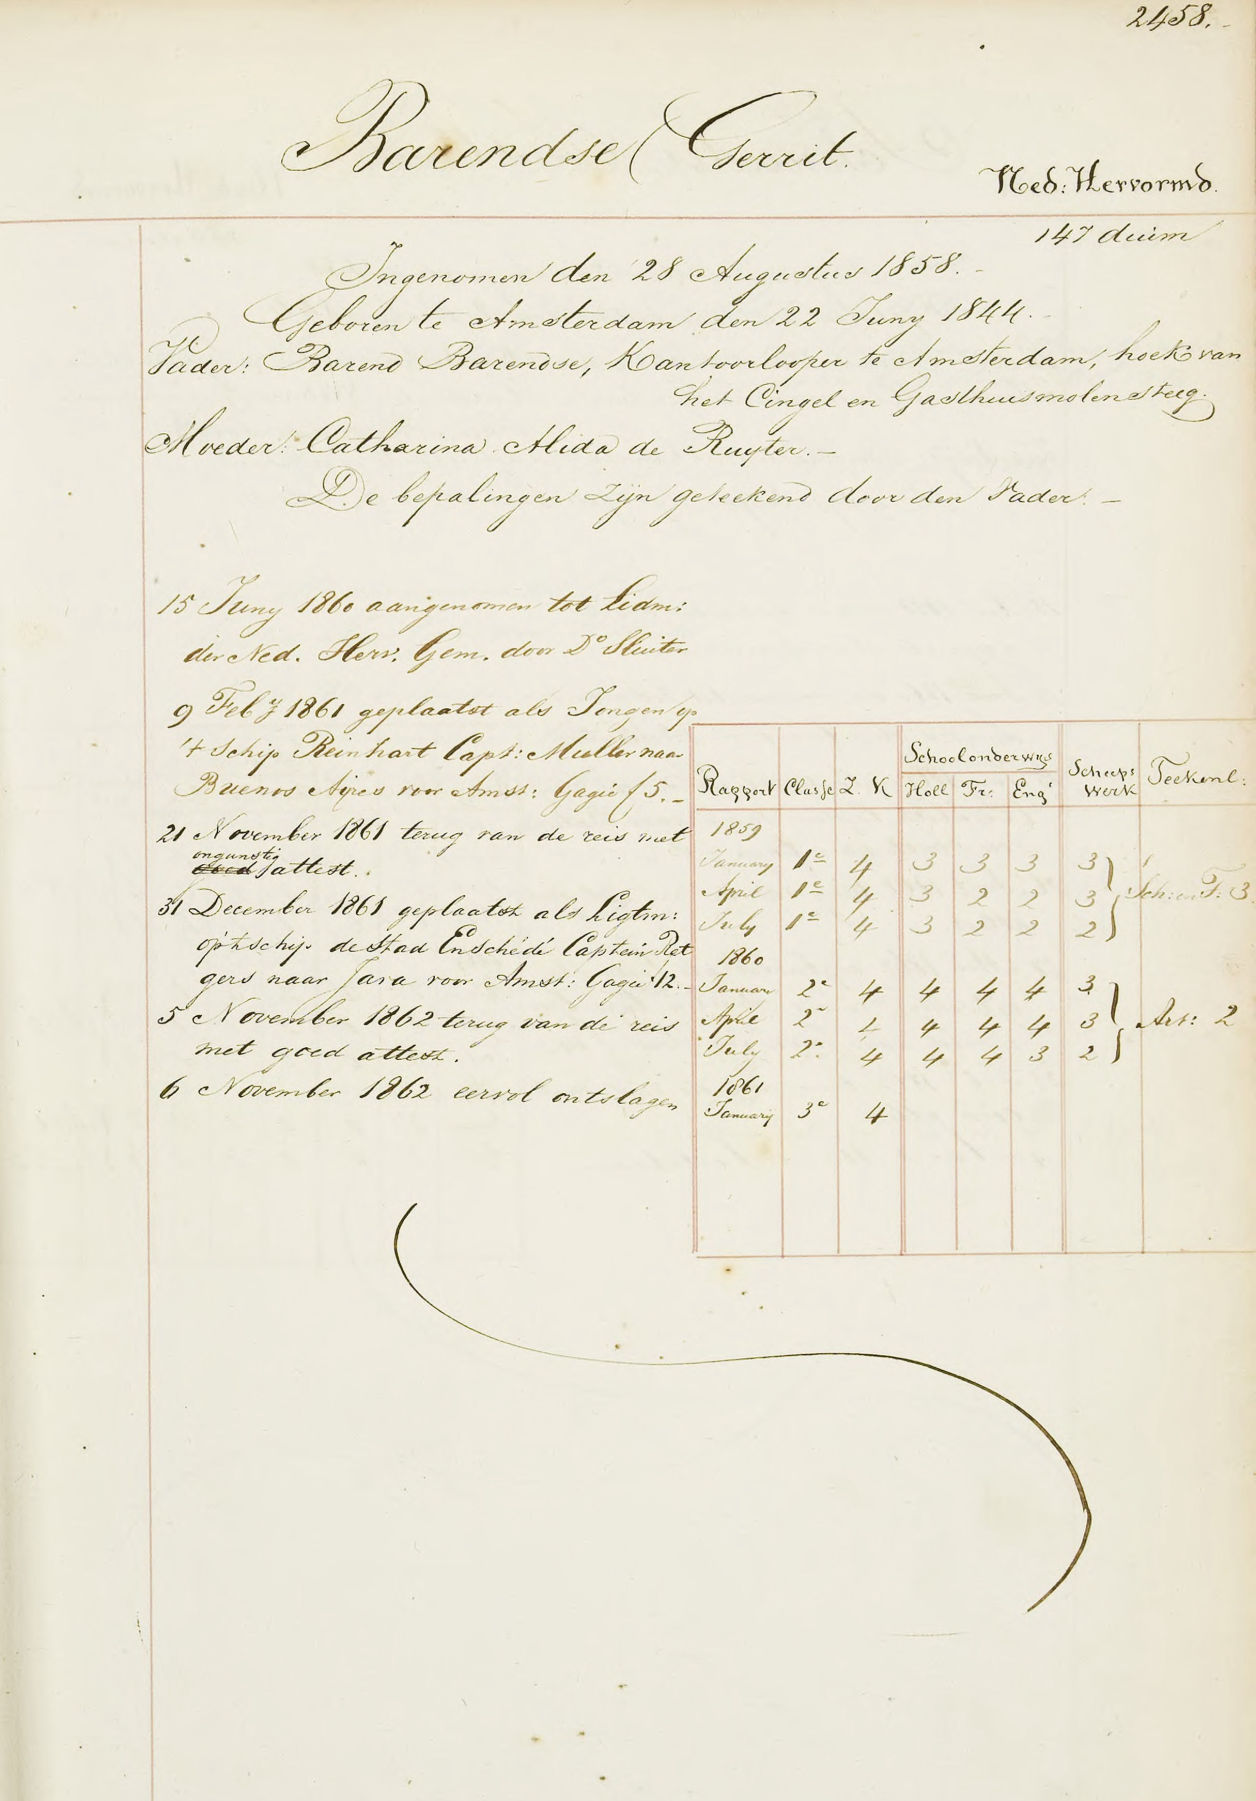 2458.
Barendse Gerrit.
Ned: Hervormd.
147 duim
Ingenomen den 28 Augustus 1858. -
Geboren te Amsterdam den 22 Juny 1844. -
Vader: Barend Barendse, Kantoorlooper te Amsterdam, hoek van
het Cingel en Gasthuismolensteeg.
Moeder: Catharina Alida de Ruyter. -
De bepalingen zijn geteekend door den Vader. -
15 Juny 1860 aangenomen tot Lidm:
der Ned. Herv. Gem. door Do Sluiter
9 Feby 1861 geplaatst als Jongen op
't schip Reinhart Capt: Muller naar
Buenos Ayres voor Amst: Gagie f 5. -
21 November 1861 terug van de reis met
ongunstig
Goed attest.
31 December 1861 geplaatst als Ligtm:
op 't schip de Stad Enschédé Captein Ret
gers naar Java voor Amst: Gagie f 12. -
5 November 1862 terug van de reis
met goed attest.
6 November 1862 eervol ontslagen
Schoolonderwys
Rapport Classe Z. K Holl Fr: Eng Scheeps Werk Teekenl:
1859
January 1e 4 3 3 3 3
April 1e 4 3 2 2 3 Sch: en F: 3
July 1e 4 3 2 2 2
1860
January 2e 4 4 4 4 3
April 2e 4 4 4 4 3 Art: 2
July 2e 4 4 4 3 2
1861
January 3e 4